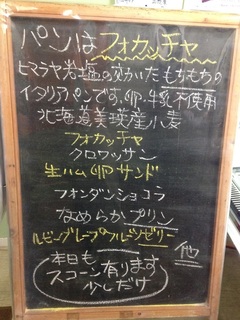 パンはフォカッチャ
ヒマラヤ岩塩の効いたもちもちの
イタリアパンです。卵、牛乳不使用
北海道美瑛産小麦
フォカッチャ
クロワッサン
生ハム卵サンド
フォンダンショコラ
なめらかプリン
ルビーグレープフルーツゼリー
他
本日も
スコーン有ります
少しだけ